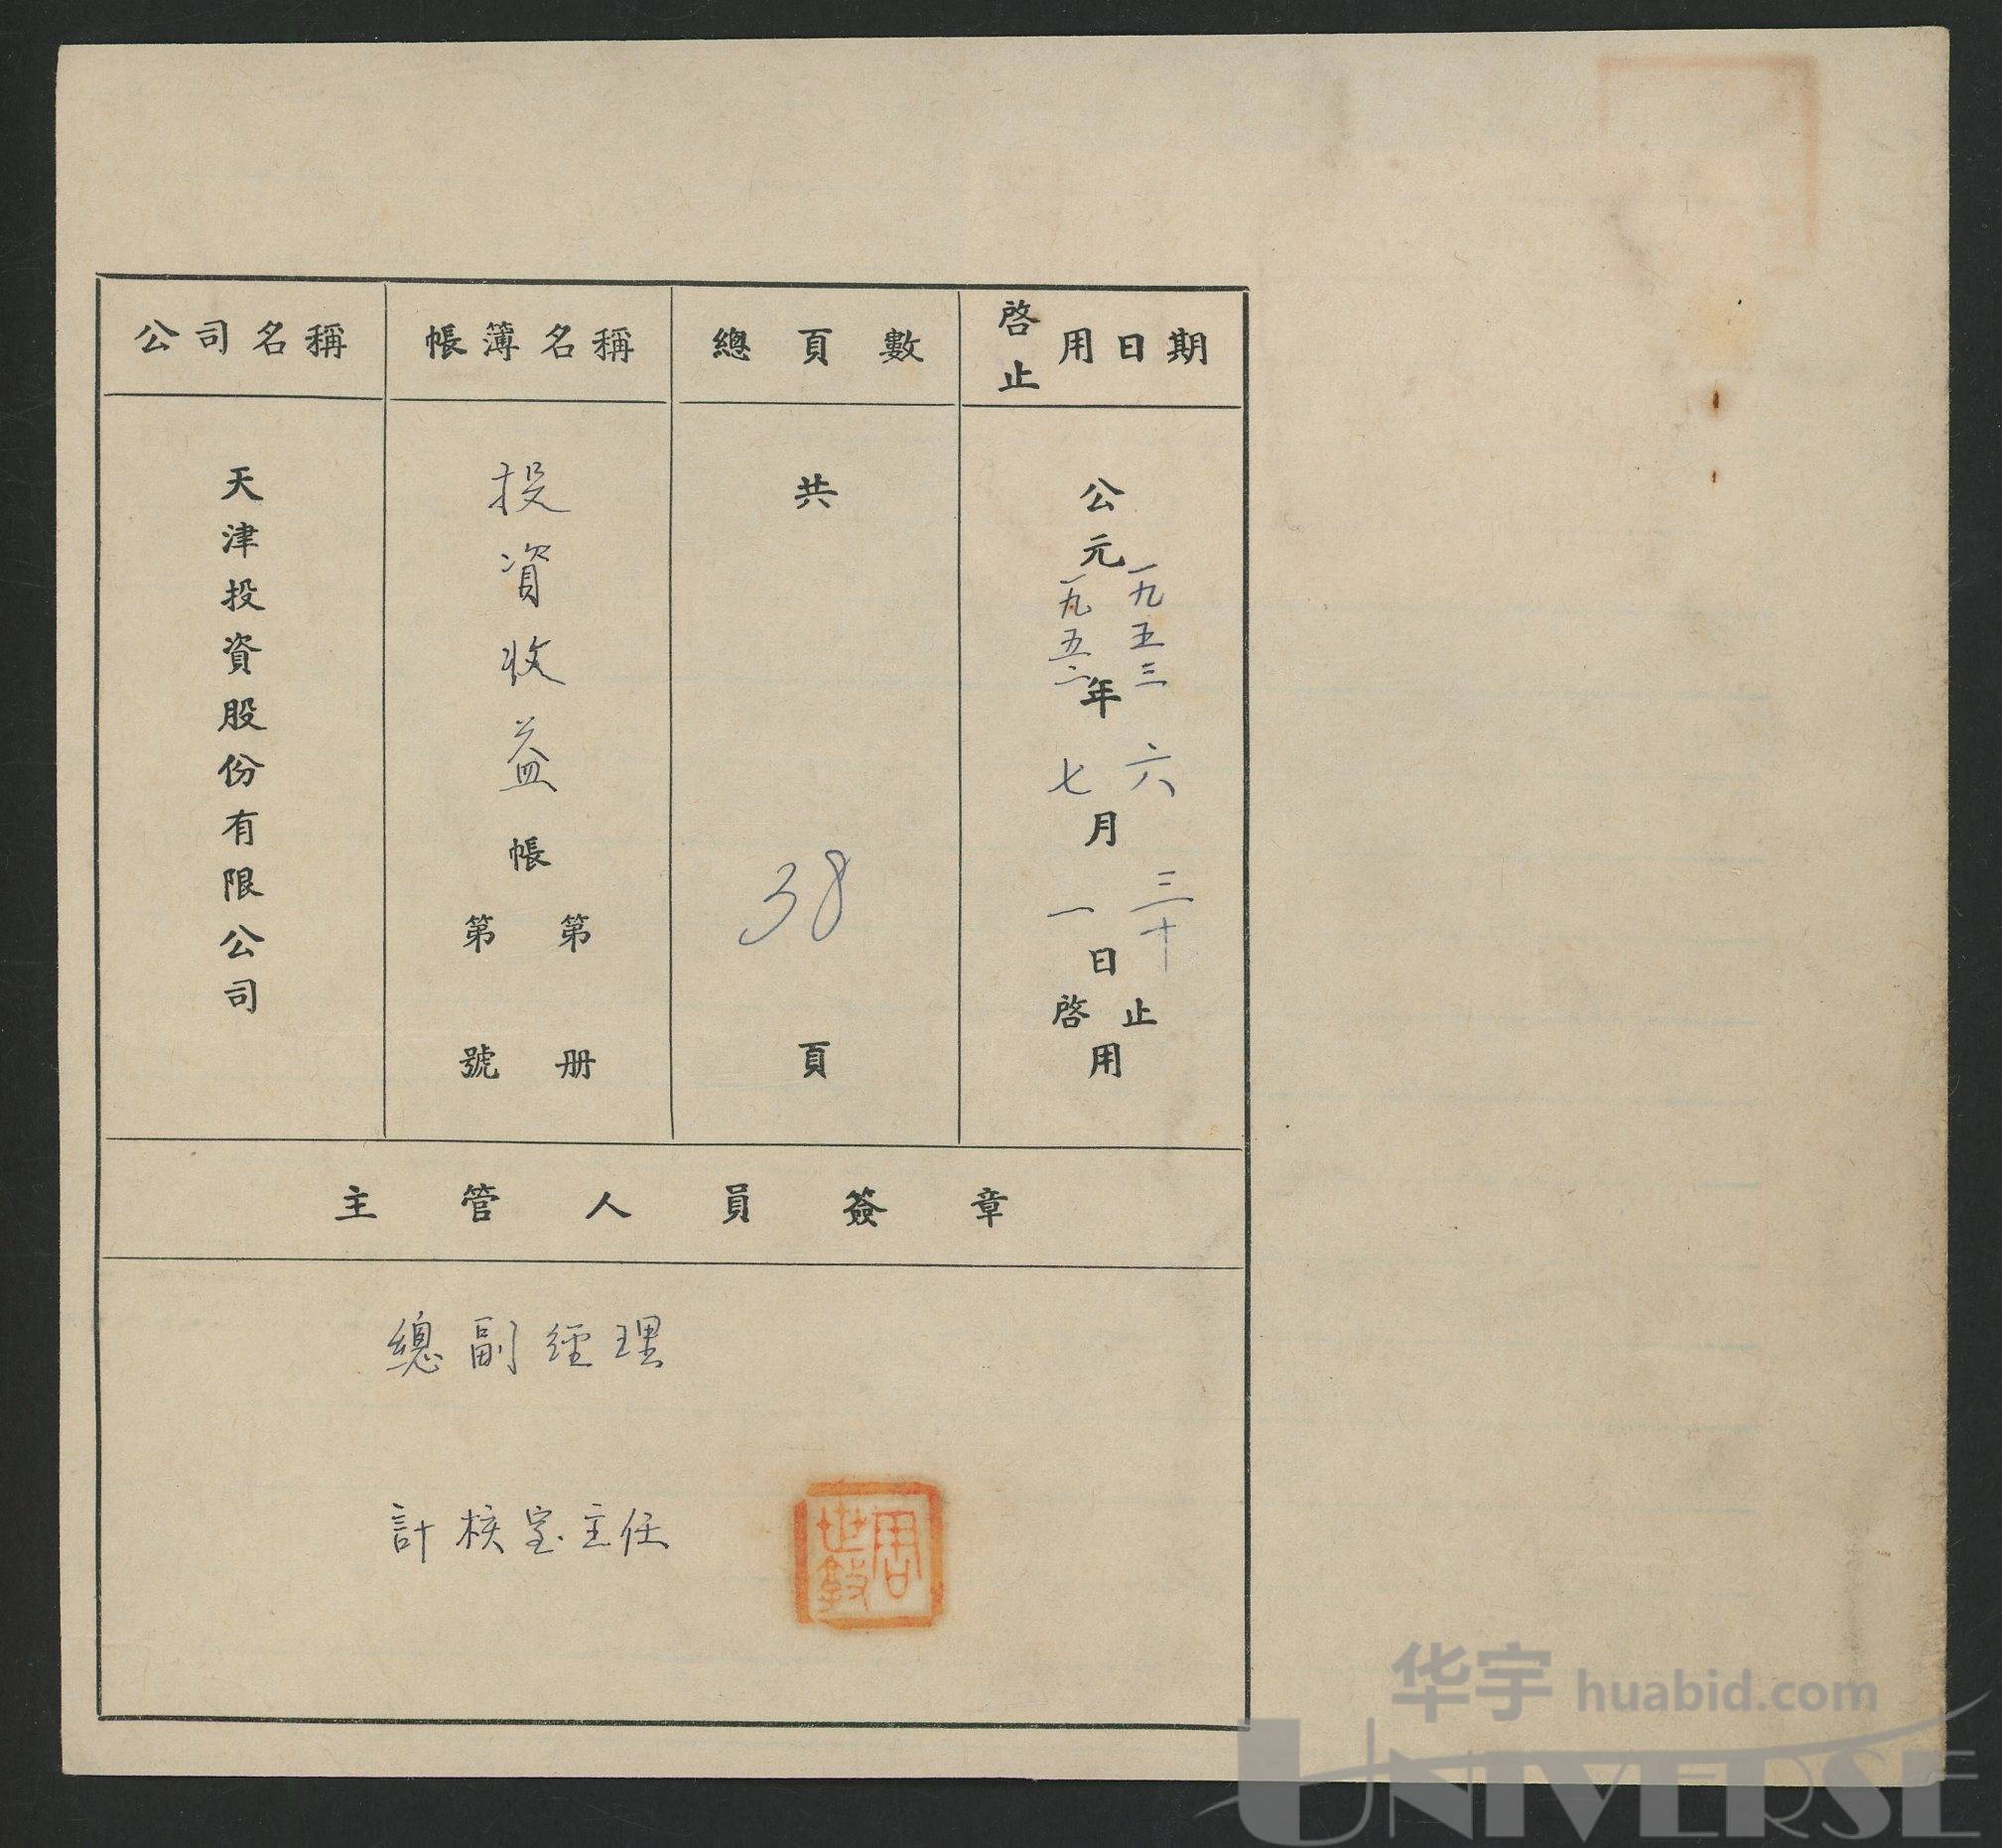 公司名稱
帳簿名稱
總頁數
啓止用日期
天津投資股份有限公司
投資收益帳
第號
第册
共38頁
公元
一九五二年七月一日啓用
一九五三年六月三十日止用
主管人員簽章
總副經理
計核室主任
周世
华宇 huabid.com
UNIVERSE